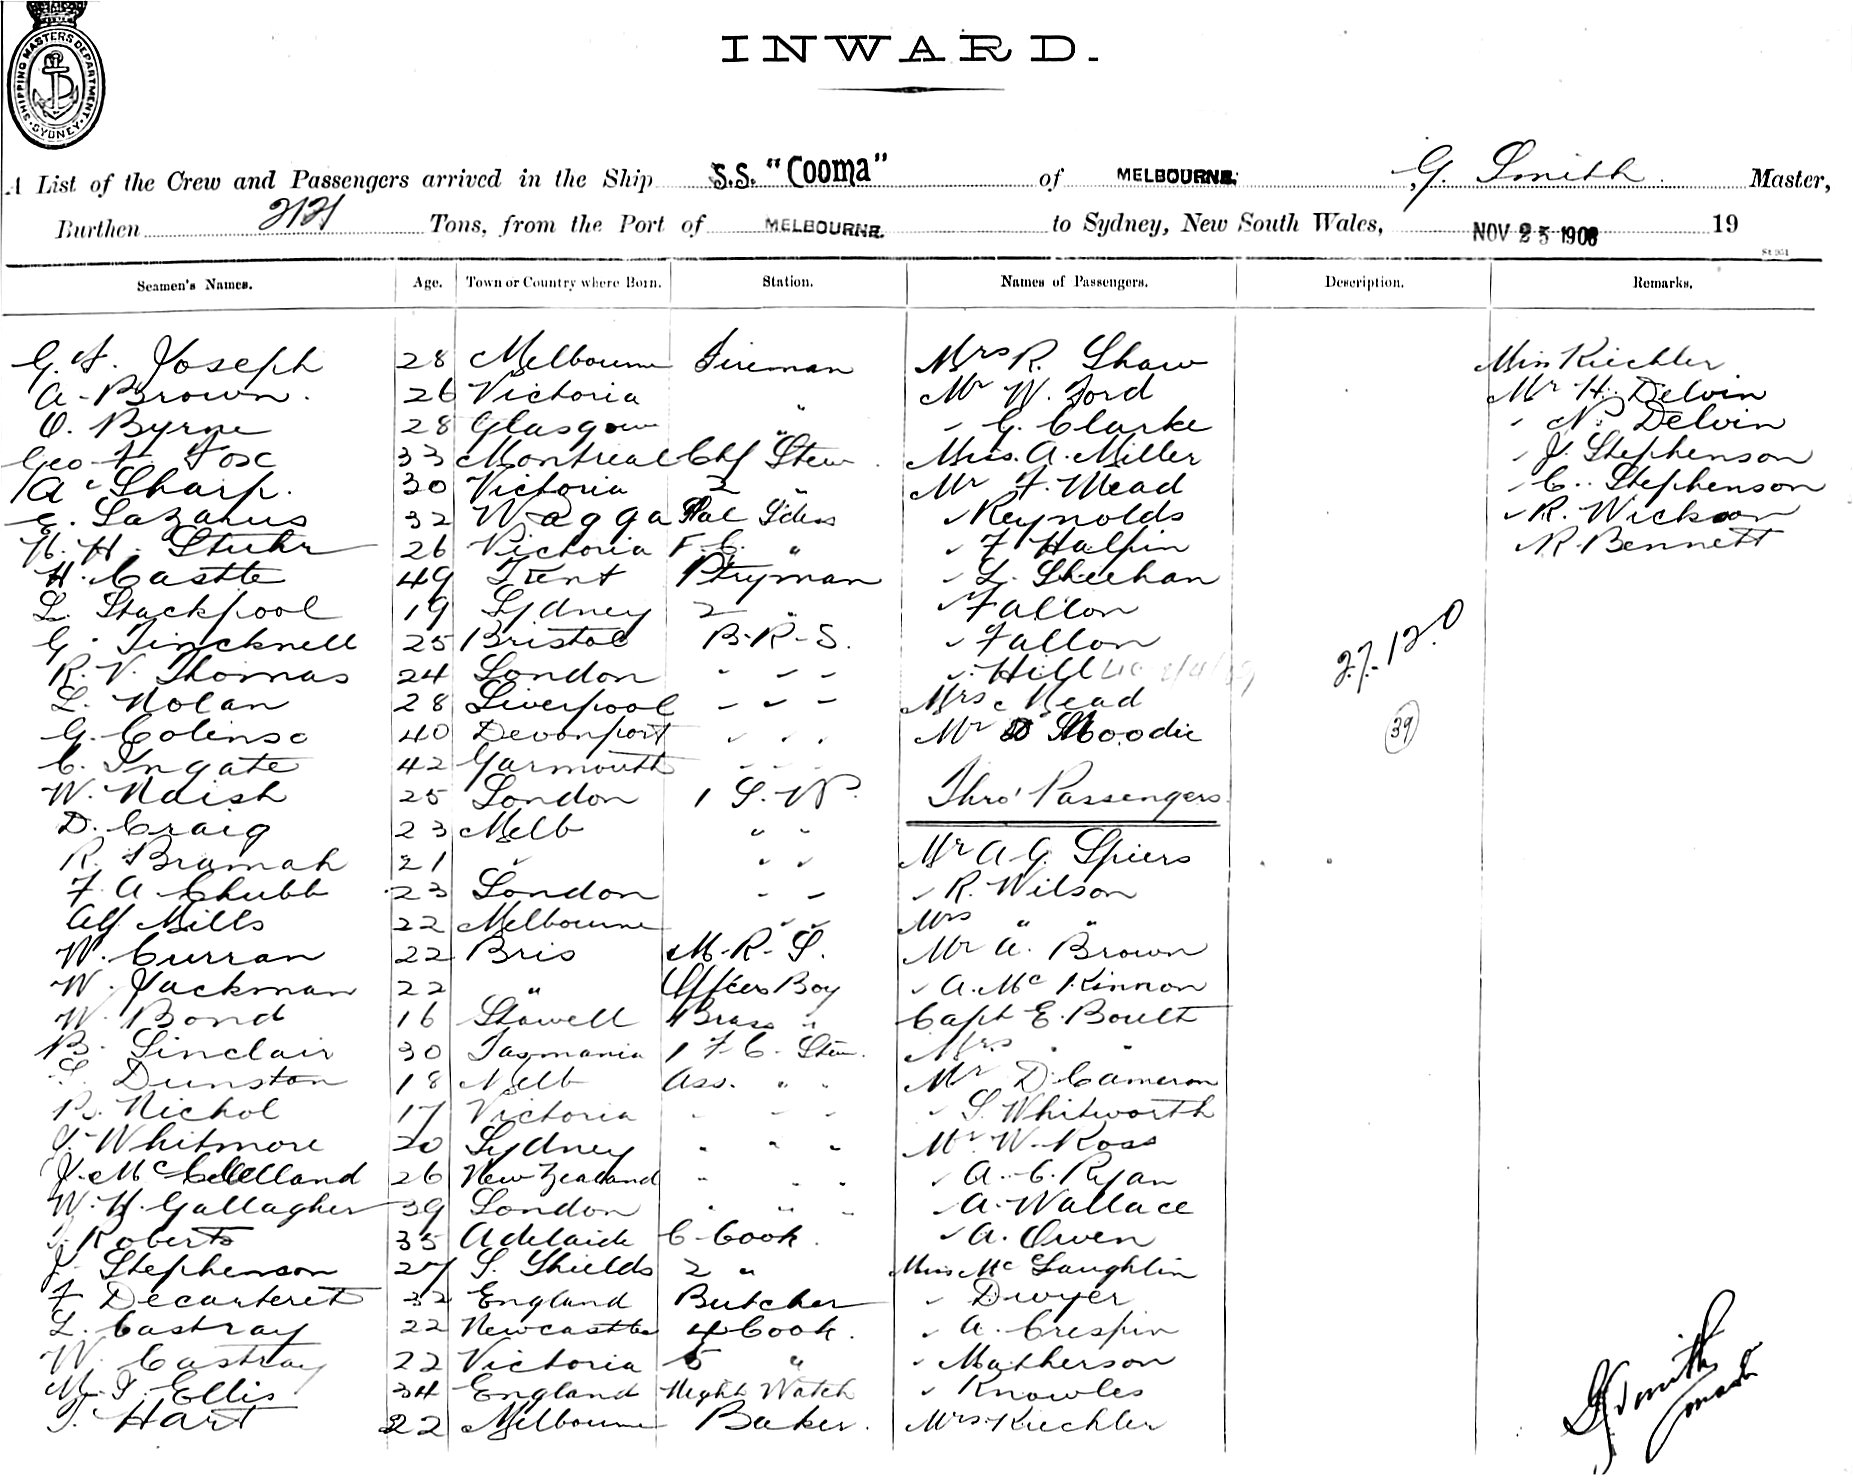 SHIPPING MASTERS DEPARTMENT · SYDNEY ·
INWARD.
A List of the Crew and Passengers arrived in the Ship S.S. "Cooma" of MELBOURNE. G. Smith. Master,
Burthen 2121 Tons, from the Port of MELBOURNE. to Sydney, New South Wales, NOV 25 1908 19
Seamen's Names. Age. Town or Country where Born. Station. Names of Passengers. Description. Remarks.
G. F. Joseph 28 Melbourne Fireman Mrs R. Shaw Miss Kiechler
A. Brown. 26 Victoria " Mr W. Ford Mr H. Delvin
O. Byrne 28 Glasgow " " G. Clarke " N. Delvin
Geo H Fox 33 Montreal Chf Stew. Miss. A. Miller " J. Stephenson
A. Sharp. 30 Victoria 2 " Mr F. Mead " C. Stephenson
E. Lazarus 32 Wagga " Reynolds " R. Wickson
H. H. Stuhr 26 Victoria F. C. " " F Halpin " R. Bennett
H. Castle 49 Trent Ptryman " L. Sheehan
L. Stackpool 19 Sydney 2 " " Fallon
G. Tincknell 25 Bristol B-R-S. " Fallon
R. V. Thomas 24 London " " " " Hill
L. Nolan 28 Liverpool " " " Mrs Mead
G. Colenso 40 Devonport " " " Mr Moodie
27.12.0
(39)
C. Ingate 42 Yarmouth " " "
W. Naish 25 London 1 S. W. Thro' Passengers
D. Craig 23 Melb " "
R. Bramah 21 " " " Mr A G. Spiers
F. A. Chubb 23 London " " " R. Wilson
Alf Mills 22 Melbourne " " Mrs " "
W. Curran 22 Bris M-R-S. Mr A. Brown
W. Jackman 22 " Officers Boy " A. McKinnon
W. Bond 16 Stawell Brass " Capt E. Boult
B. Sinclair 30 Tasmania 1 F. C. Stew. Mrs " "
Dunston 18 Melb Ass. " " Mr D. Cameron
B. Nichol 17 Victoria " " " " S. Whitworth
J. Whitmore 20 Sydney " " " Mr W. Ross
J. McClelland 26 New Zealand " " " " A. C. Ryan
W. H. Gallagher 39 London " " " " A. Wallace
Roberts 35 Adelaide C. Cook. " A. Owen
J. Stephenson 27 S. Shields 2 " Miss McLaughlin
F Decarteret 32 England Butcher " Dwyer
L. Castray 22 Newcastle 4 Cook. " A. Crespin
W. Castray 22 Victoria 5 " " Matherson
M. J. Ellis 34 England Night Watch " Knowles
T. Hart 22 Melbourne Baker. Mrs Kiechler
G Smith
master